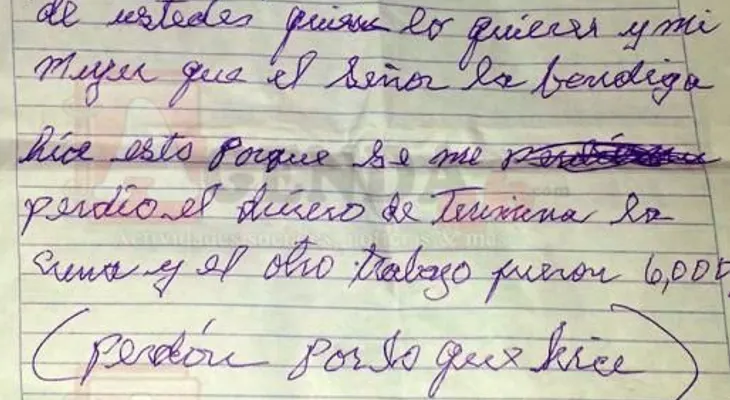 de ustedes quiere lo quieres y mi
mujer que el Señor la bendiga
hice esto porque se me
perdio el dinero de Termina la
y el otro trabajo fueron 6,000
(perdón por lo que hice)
AGENDA